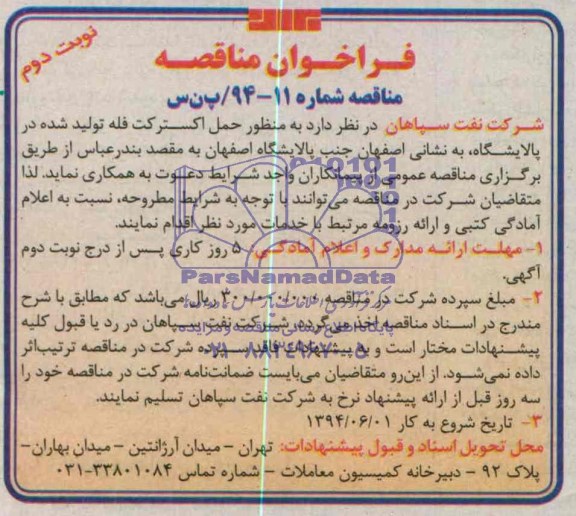 نوبت دوم
فراخوان مناقصه
مناقصه شماره ۱۱-۹۴/ب‌ن‌س
شرکت نفت سپاهان در نظر دارد به منظور حمل اکسترکت فله تولید شده در
پالایشگاه، به نشانی اصفهان جنب پالایشگاه اصفهان به مقصد بندرعباس از طریق
برگزاری مناقصه عمومی از پیمانکاران واجد شرایط دعوت به همکاری نماید. لذا
متقاضیان شرکت در مناقصه می‌توانند با توجه به شرایط مطروحه، نسبت به اعلام
آمادگی کتبی و ارائه رزومه مرتبط با خدمات مورد نظر اقدام نمایند.
۱- مهلت ارائه مدارک و اعلام آمادگی: ۵ روز کاری پس از درج نوبت دوم
آگهی.
ParsNamadData
۲- مبلغ سپرده شرکت در مناقصه ریال می‌باشد که مطابق با شرح
مندرج در اسناد مناقصه اخذ می‌گردد، شرکت نفت سپاهان در رد یا قبول کلیه
پیشنهادات مختار است و به پیشنهادات فاقد سپرده شرکت در مناقصه ترتیب‌اثر
۰۲۱-۸۸۳۴۹۶۷۰-۵
داده نمی‌شود. از این‌رو متقاضیان می‌بایست ضمانت‌نامه شرکت در مناقصه خود را
سه روز قبل از ارائه پیشنهاد نرخ به شرکت نفت سپاهان تسلیم نمایند.
۳- تاریخ شروع به کار ۱۳۹۴/۰۶/۰۱
محل تحویل اسناد و قبول پیشنهادات: تهران – میدان آرژانتین – میدان بهاران–
پلاک ۹۲ – دبیرخانه کمیسیون معاملات – شماره تماس ۳۳۸۰۱۰۸۴-۰۳۱